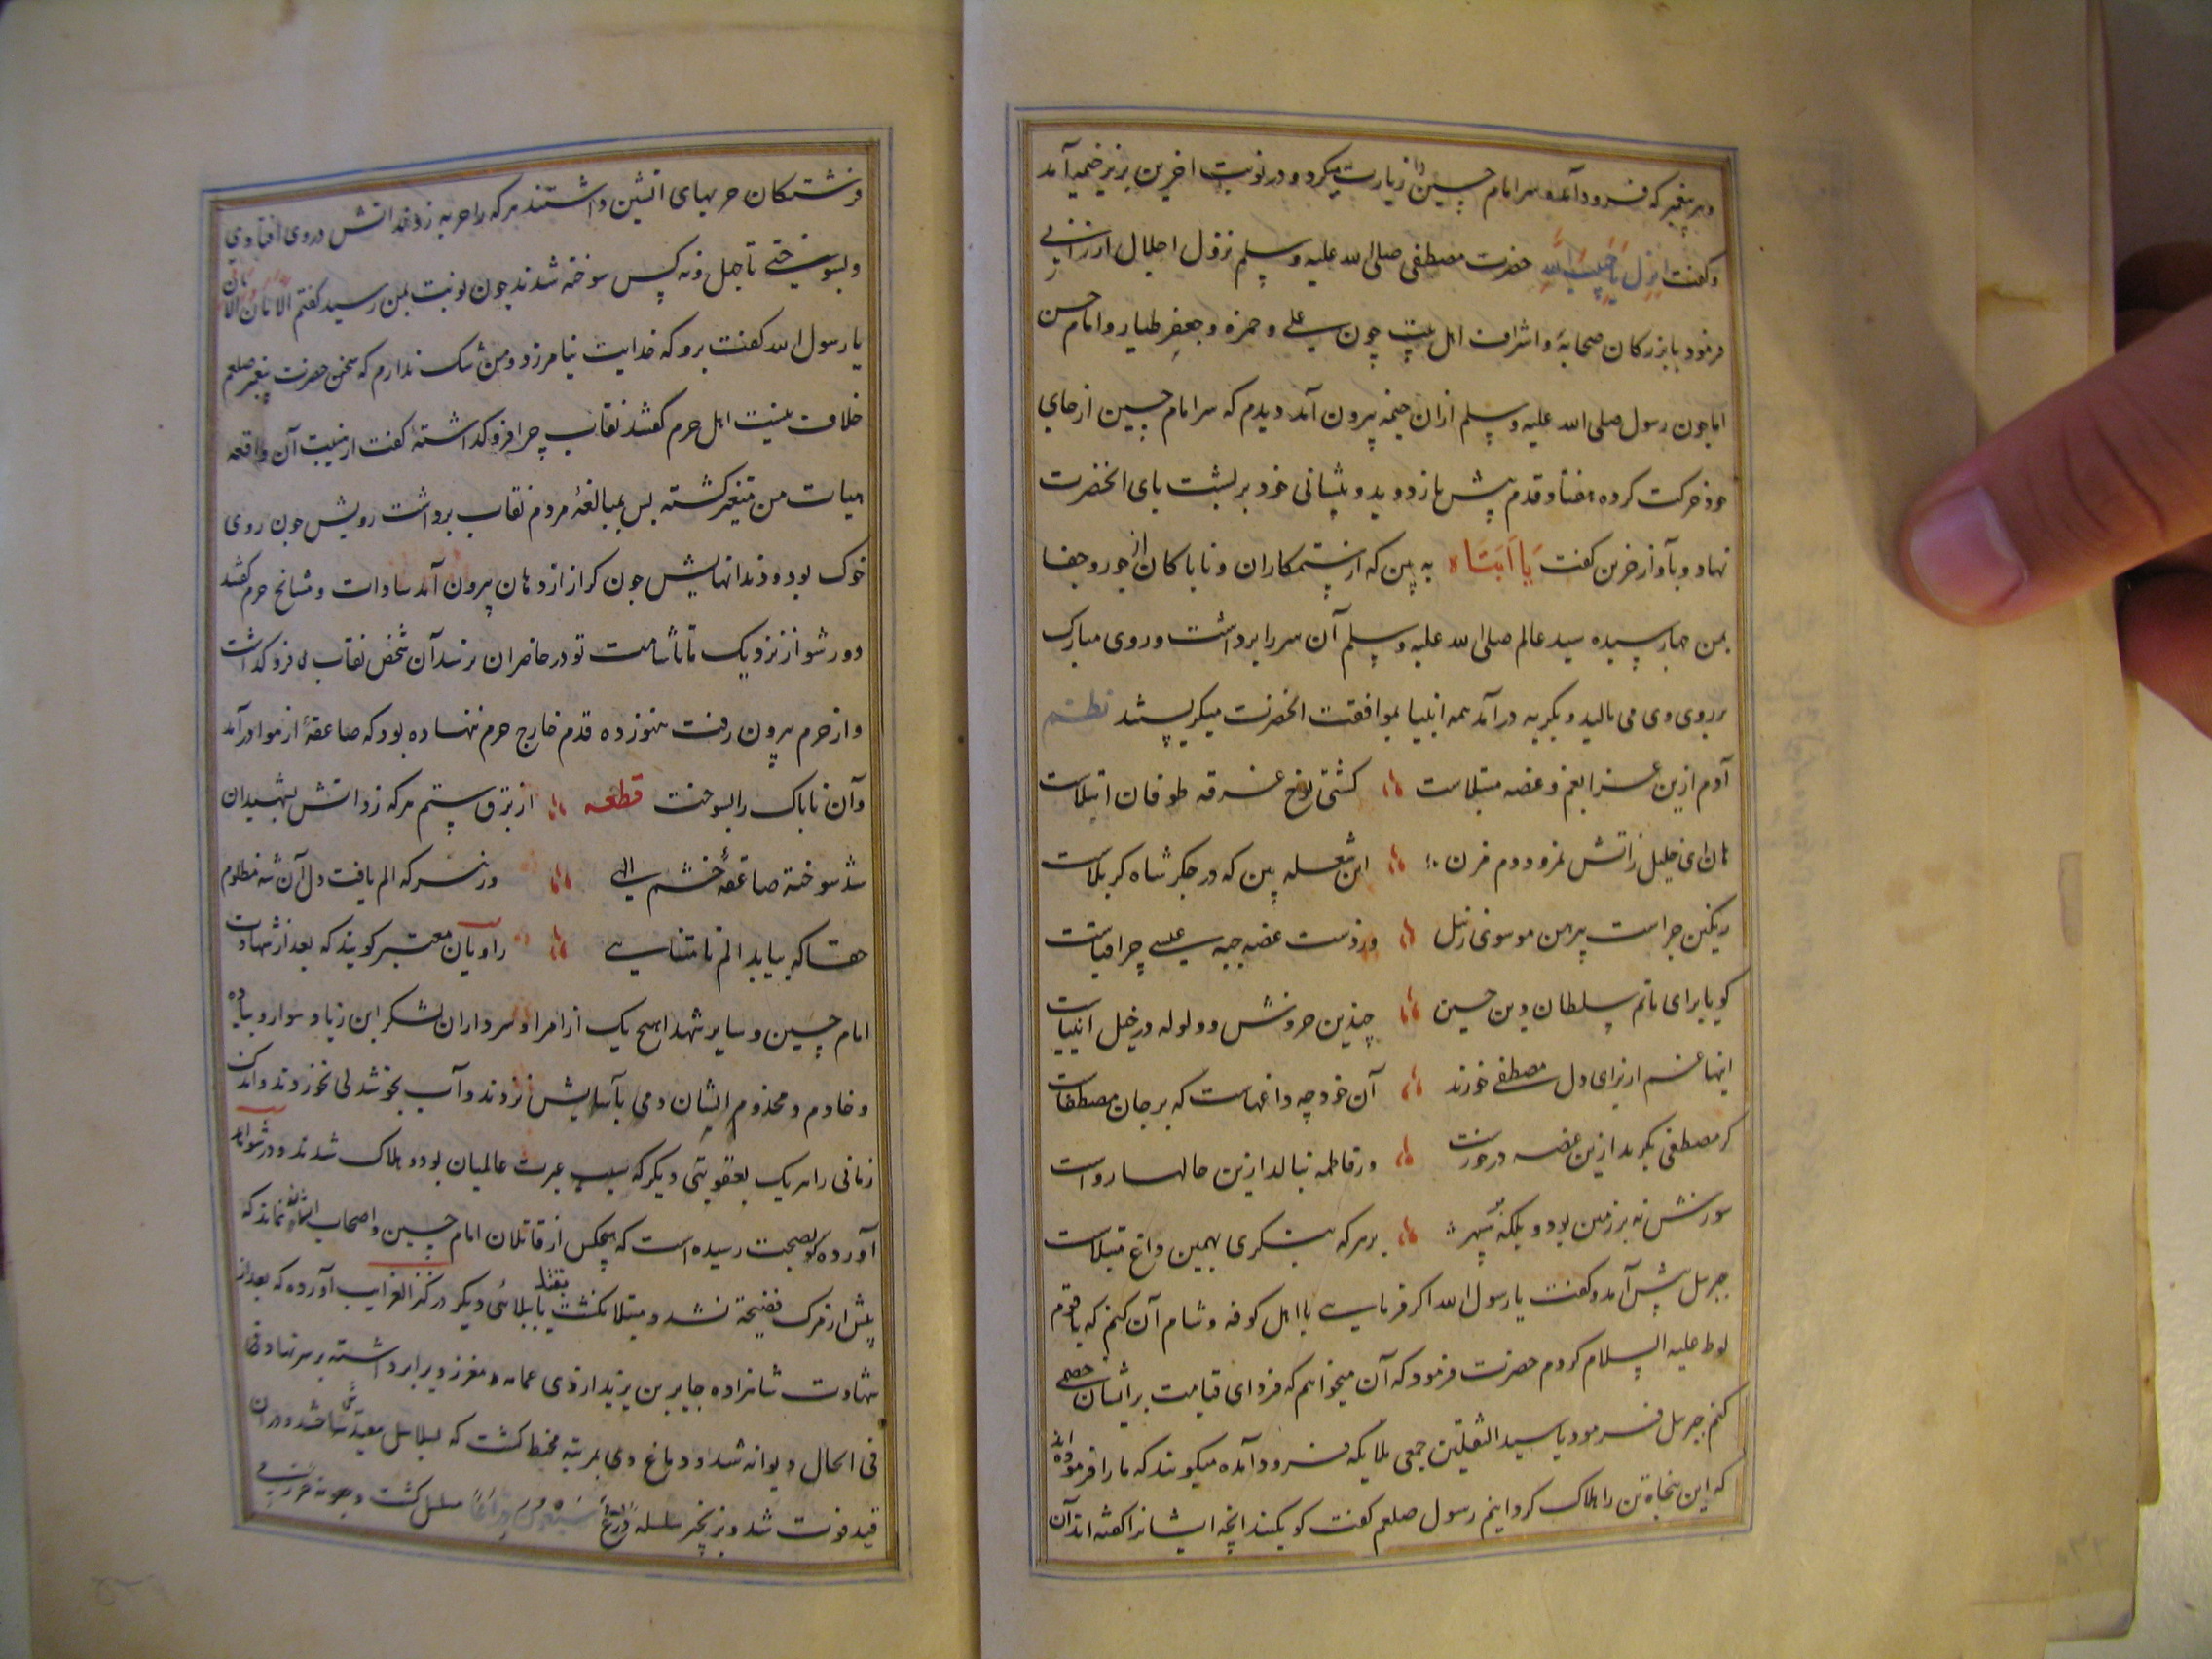 و هر پیغمبر که فرود آمد و سر امام حسین را زیارت میکرد و در نوبت اخیرین بزیر خیمه آمد
و گفت انزل یا حبیب الله حضرت مصطفی صلی الله علیه و سلم نزول اجلال ارزانی
فرمود با بزرکان صحابه و اشراف اهل بیت چون علی و حمزه و جعفر طیار و امام حسن
اما چون رسول صلی الله علیه و سلم ازان خیمه بیرون آمد دیدم که سر امام حسین از جای
خود حرکت کرده هفتاد قدم پیش باز دوید و پیشانی خود بر پشت پای انحضرت
نهاد و بآواز حزین گفت یا اَبَتَاه به بین که از ستمکاران و ناپاکان از جور و جفا
بمن چها رسیده سید عالم صلی الله علیه و سلم آن سر را برداشت و روی مبارک
بر روی وی می مالید و بکریه درآمد همه انبیا بموافقت انحضرت میکریستند نظم
آدم ازین عزا بغم و غصه مبتلاست کشتی نوح غرقه طوفان ابتلاست
هان ای خلیل زاتش نمرود دم مزن این شعله بین که در جکر شاه کربلاست
پیرهن موسوی زنیل عیسی چراقباست
کویا برای ماتم سلطان دین حسین چندین خروش و ولوله در خیل انبیاست
اینها غم از برای دل مصطفی خورند آن خود چه داغهاست که بر جان مصطفاست
کر مصطفی بکرید ازین غصه درخورست ور فاطمه بنالد ازین حالها رواست
سوزش نه بر زمین بود و بلکه نه سپهر بر هر که بنکری بهمین داغ مبتلاست
جبریل پیش آمد و گفت یا رسول الله اکر فرمایی با اهل کوفه و شام آن کنم که با قوم
لوط علیه السلام کردم حضرت فرمود که آن میخواهم که فردای قیامت بر ایشان خصمی
کنم جبریل فرمود یا سید الثقلین جمعی ملایکه فرود آمده میکویند که ما را فرموده اند
که این پنجاه تن را هلاک کردانیم رسول صلعم گفت کو بکنید انچه ایشانرا گفته اند آن
فرشتکان حربهای اتشین داشتند هر که را حربه زدند اتش در وی افتادی
و بسوختی تا چهل و نه کس سوخته شدند چون نوبت بمن رسید گفتم الامان الامان
یا رسول الله گفت برو که خدایت نیامرزد و من شک ندارم که سخن حضرت پیغمبر صلعم
خلاف نیست اهل حرم گفتند نقاب چرا فرو کداشتهٔ گفت از هیبت آن واقعه
هیات من متغیر کشته پس بمبالغهٔ مردم نقاب برداشت رویش چون روی
خوک بود و دندانهایش چون کراز از دهان بیرون آمد سادات و مشایخ حرم گفتند
دور شو از نزدیک ما تا شامت تو در حاضران نرسد آن شخص نقاب فرو کداشت
و از حرم بیرون رفت هنوز ده قدم خارج حرم ننهاده بود که صاعقهٔ از هوا درآمد
و آن ناپاک را بسوخت قطعه از برق ستم هر که زد اتش بشهیدان
شد سوخته صاعقهٔ خشم الهی ور سر که الم یافت دل آن شه مظلوم
حقا که بیابد الم نامتناهی راویان معتبر کویند که بعد از شهادت
امام حسین و سایر شهدا هیچ یک از امرا و سرداران لشکر ابن زیاد سوار و پیاده
و خادم و مخدوم ایشان دمی بآسایش نزدند و آب بخوشدلی نخوردند و اندک
زمانی را هر یک بعقوبتی دیکر که سبب عبرت عالمیان بود هلاک شدند و در شواهد
آورده که بصحت رسیده است که هیچکس از قاتلان امام حسین و اصحاب ایشان نماند که
پیش از مرک فضیحة نشد و مبتلا نکشت بقتل یا ببلائی دیکر در کنز الغرایب آورده که بعد از
شهادت شاهزاده جابر بن یزید ازدی عمامه و مغفر ویرا برداشته بر سر نهاد
فی الحال دیوانه شد و دماغ وی بمرتبه مخبط کشت که بسلاسل مقید ساختند و در ان
قید فوت شد و بزنجیر سلسله ذرعها سبعون ذراعا مسلسل کشت